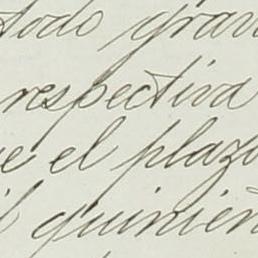 todo grav
respectiva
e el plazo
il quinien